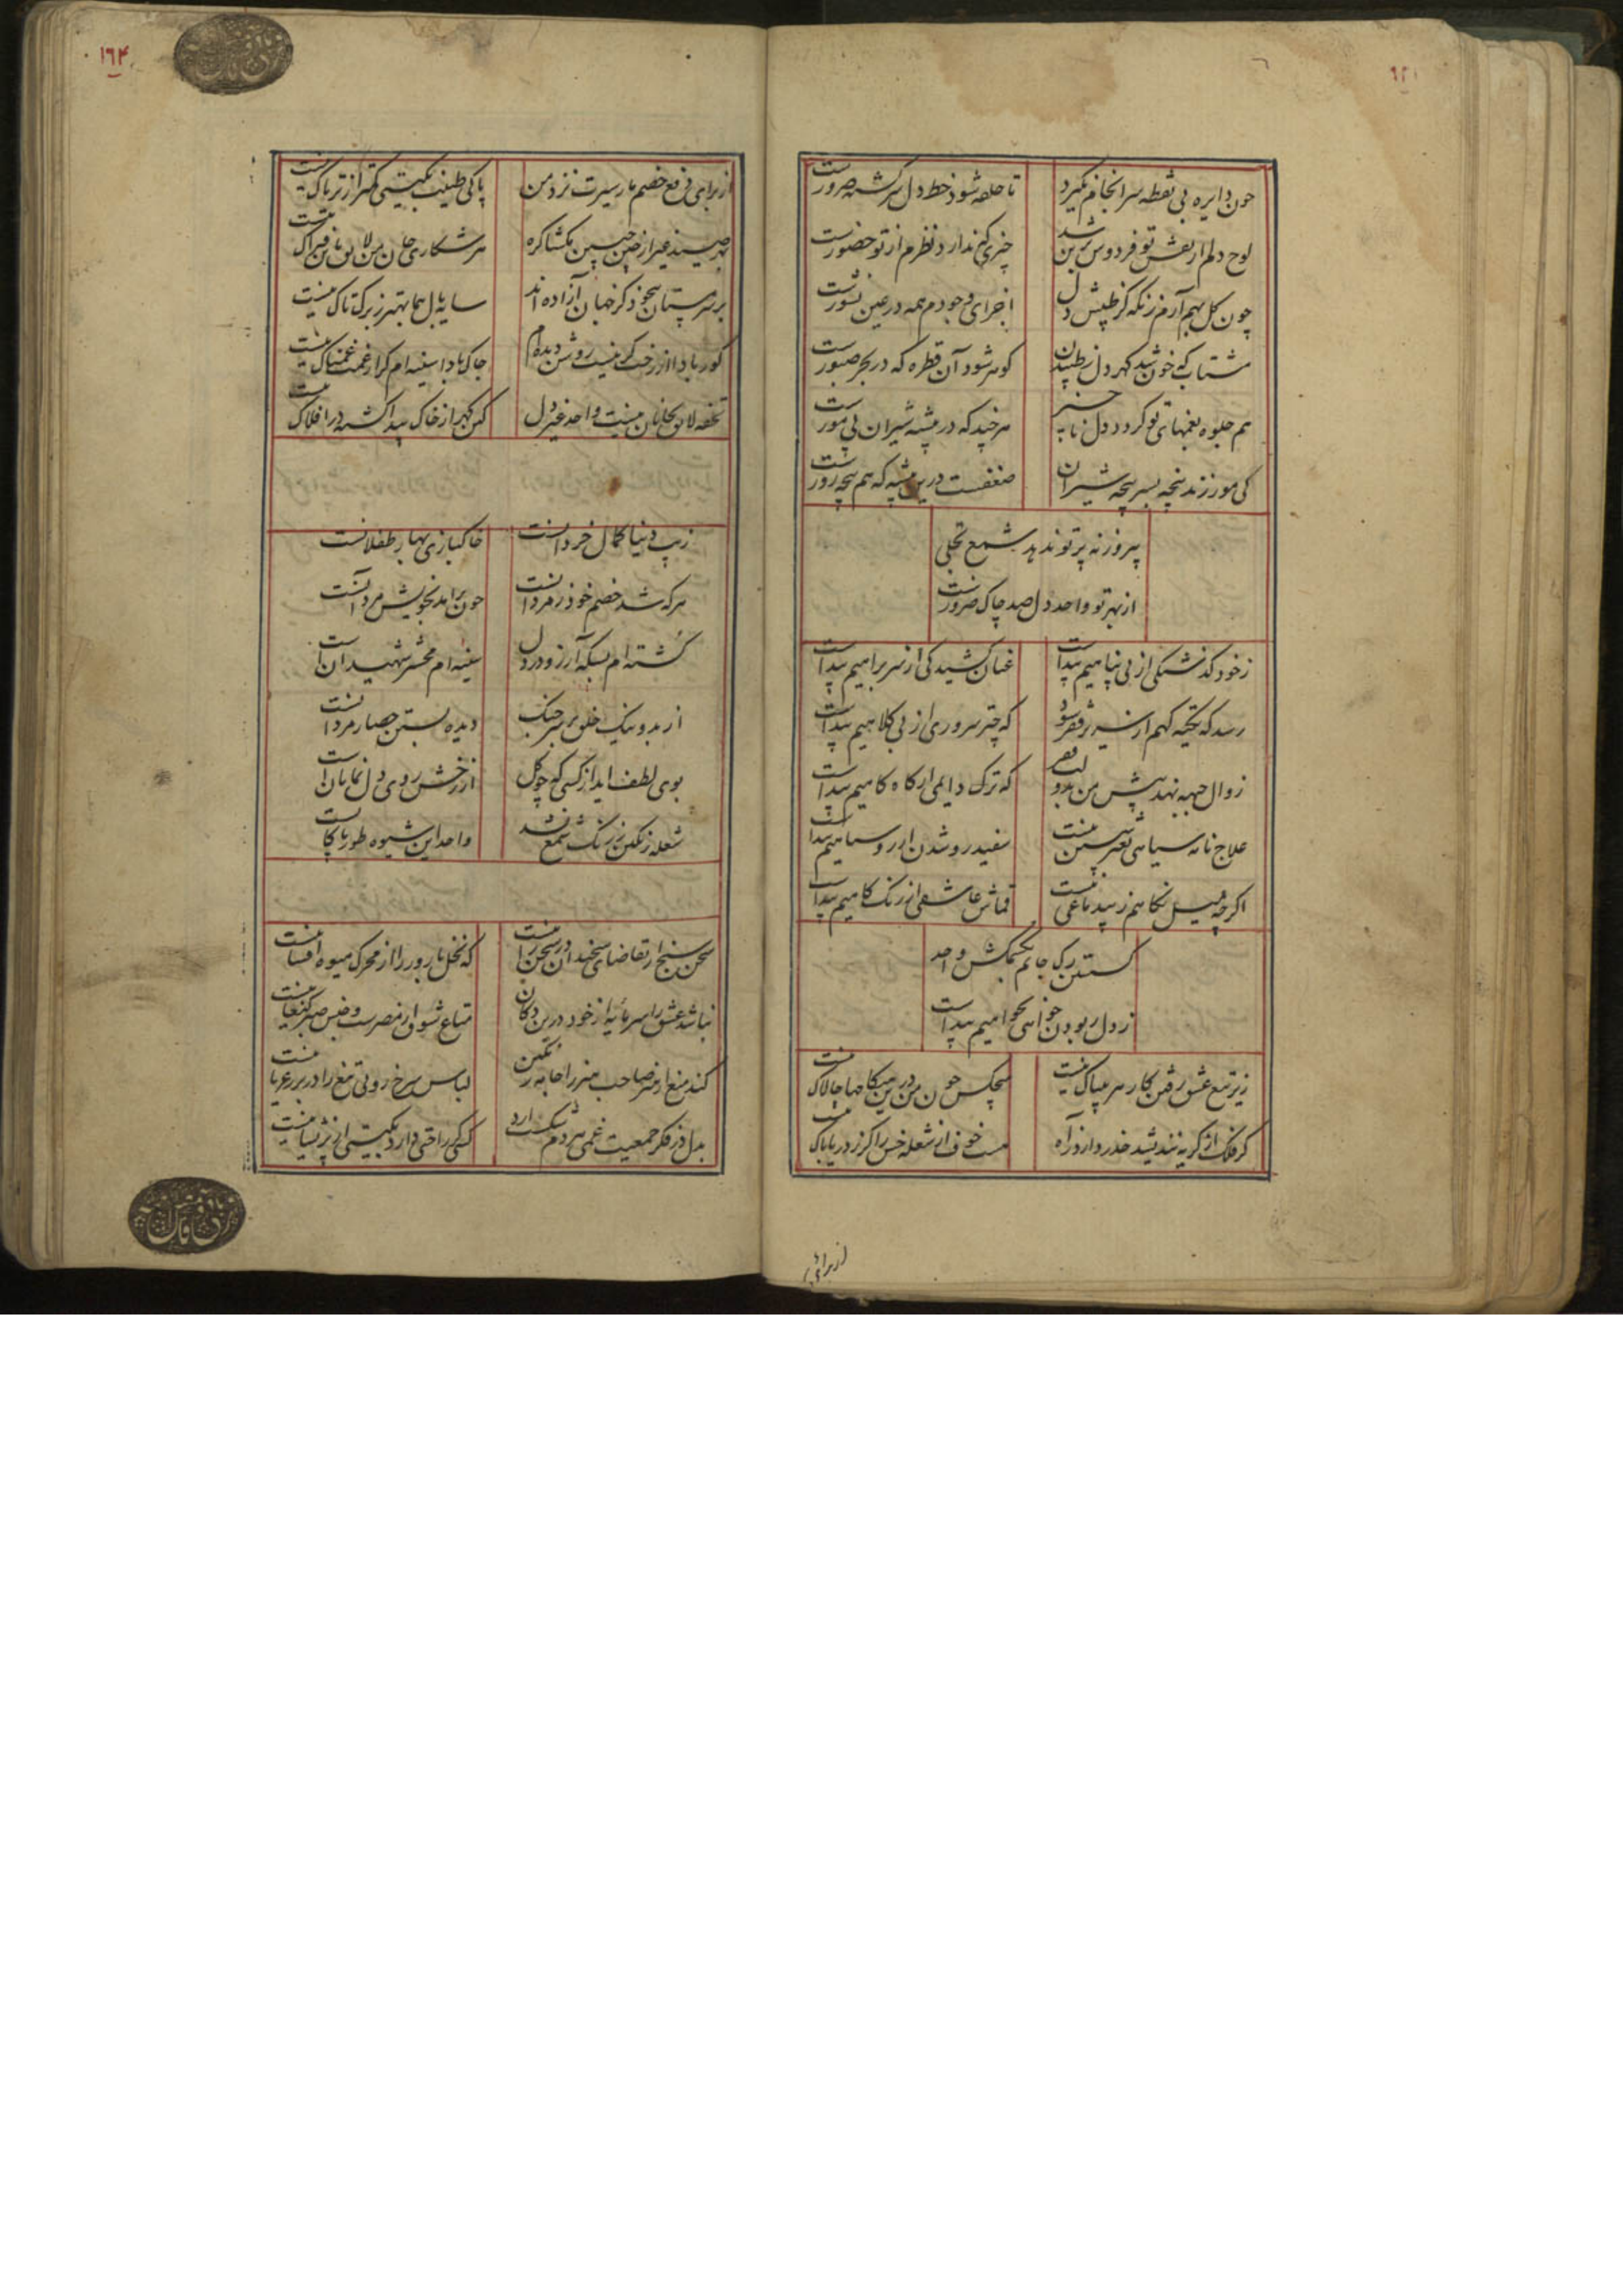 چون دایره بی نقطه سرانجام نگیرد تا حلقه شود خط دل سرگشته ضرورست
لوح دلم از نقش تو فردوس برین شد چیزی که ندارد نظرم از تو حضورست
چون گل بهم آرم زنکه کز طپش دل اجزای وجودم همه در عین نشورست
مشتاب که خون شد گهر دل ز طپیدن گوهر شود آن قطره که در بحر صبورست
هم جلوه نغمهای تو کردد دل هر چند که در بیشه شیران پی مورست
کی مور زند پنجه بسر پنجه شیران ضعفست درین بیشه که هم پنجه زورست
پروزنه پرتو ندهد شمع تجلی
از بهر تو واحد دل صد چاک ضرورست
ز خود گذشتگی از بی پناهیم پیداست عنان کشیدکی از سر براهیم پیداست
رسد که تکیه کهم از سریر فقر شود که چتر سروری از بی کلاهیم پیداست
زوال جبهه نهد پیش من که ترک دایمی از کاه کاهیم پیداست
علاج نامه سیاهی بغیر نیست سفید رو شدن از رو سیاهیم پیداست
اگرچه میل نکاهم ز قماش عاشقی از رنگ کاهیم پیداست
گسستن رک جانم بکش واحد
ز دل ربودن خواهی نخواهیم پیداست
زیر تیغ عشق رفتن کار هر بیباک نیست هیچکس چون من درین میکا جها چالاک نیست
کر فلک از کریه نندیشد حذر دارد ز آه هست خوف از شعله خس را کر ز دریا باک نیست
از برای
۱۶۴
از برای دفع خصم مار سیرت نزد من پاکی طینت بکیتی کمتر از تریاک نیست
صید غیر از چین جبین نکشا کره هر شکاری جان من لایق باین فتراک نیست
بر سرمستان بیخود کز جهان آزاده اند سایه بال هما بهتر ز برک تاک نیست
کور بادا از رخت کر نیست روشن دیده ام چاک بادا سینه ام کر از غمت غمناک نیست
تحفه لایق بجانان نیست واحد غیر دل کین گهر از خاک پیدا گشته در افلاک نیست
زیب دنیا کمال خردانست خاکبازی بهار طفلانست
هر که شد خصم خود ز مردانست چون براید بخویش مرد آنست
کشته ام بسکه آرزو در دل سینه ام محشر شهیدانست
از بد و نیک خلق بر سر جنگ دیده بستن حصار مردانست
بوی لطف آید از کسی که چو گل از رخش روی دل نمایانست
شعله رنگین ز رنگ شمع نشد واحد این شیوه طور پاکانست
سخن سنج از تقاضای سخندان در سخن رانیست که نخل بارور را از محرک میوه افشانیست
نباشد عشق را سرمایه از خود درین دکان متاع شوق از مصرست و جنس صبر کنعانیست
کند منع از هنر صاحب هنر را جامه رنگین لباس سرخ رویی تیغ را در بر ز عریانیست
بدل ذر فکر جمعیت غمی هر دم شکست آرد کسی کر راحتی دارد بکیتی از پریشانیست